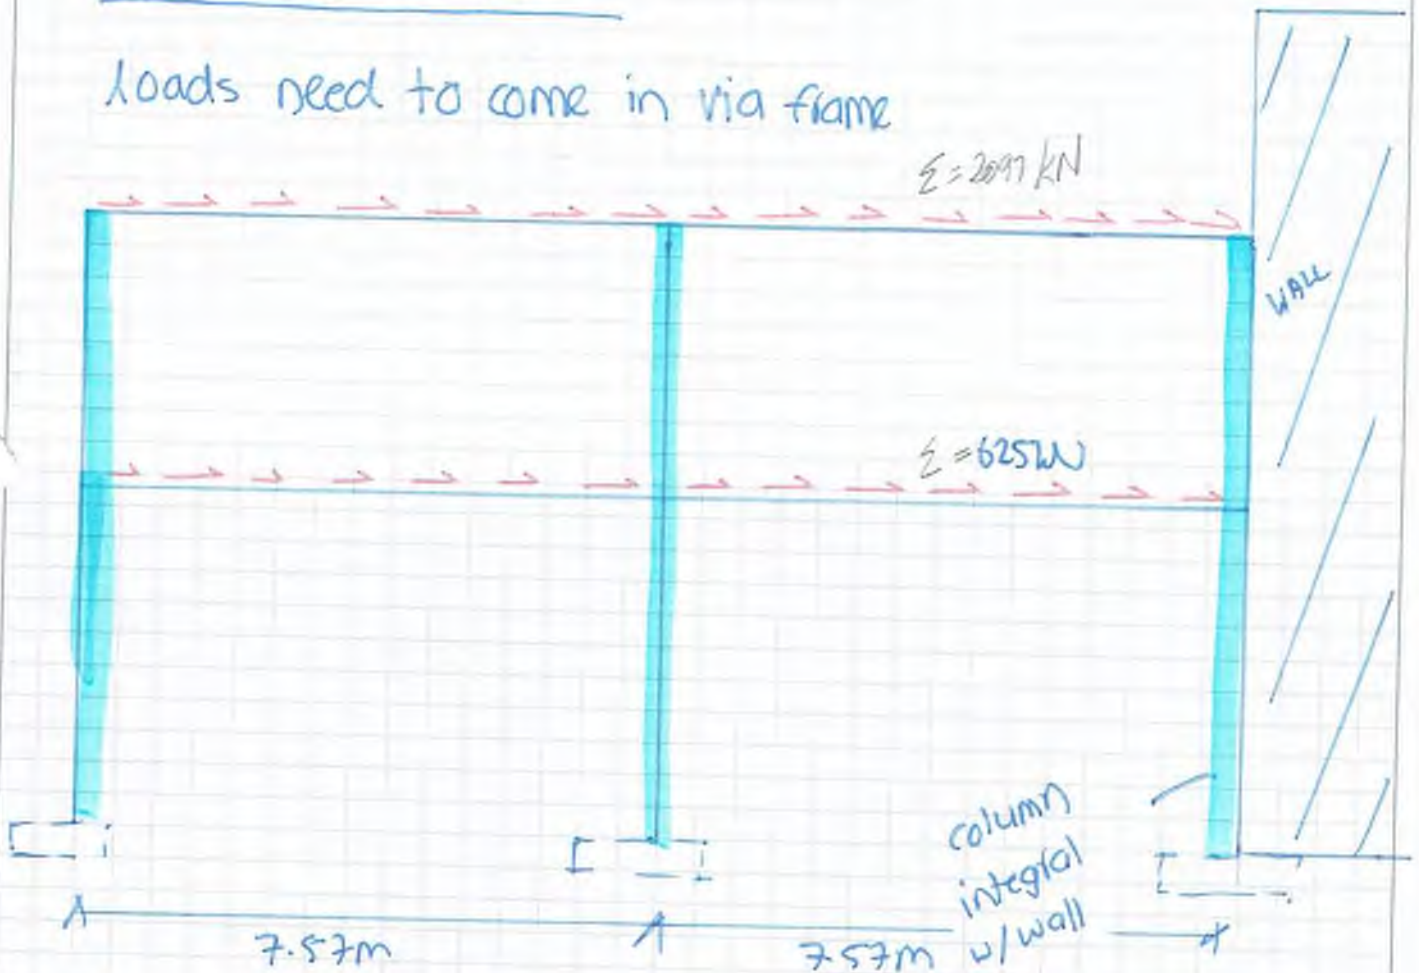 loads need to come in via frame
Σ=2097 kN
WALL
Σ=625kN
column
integral
w/wall
7.57m
7.57m